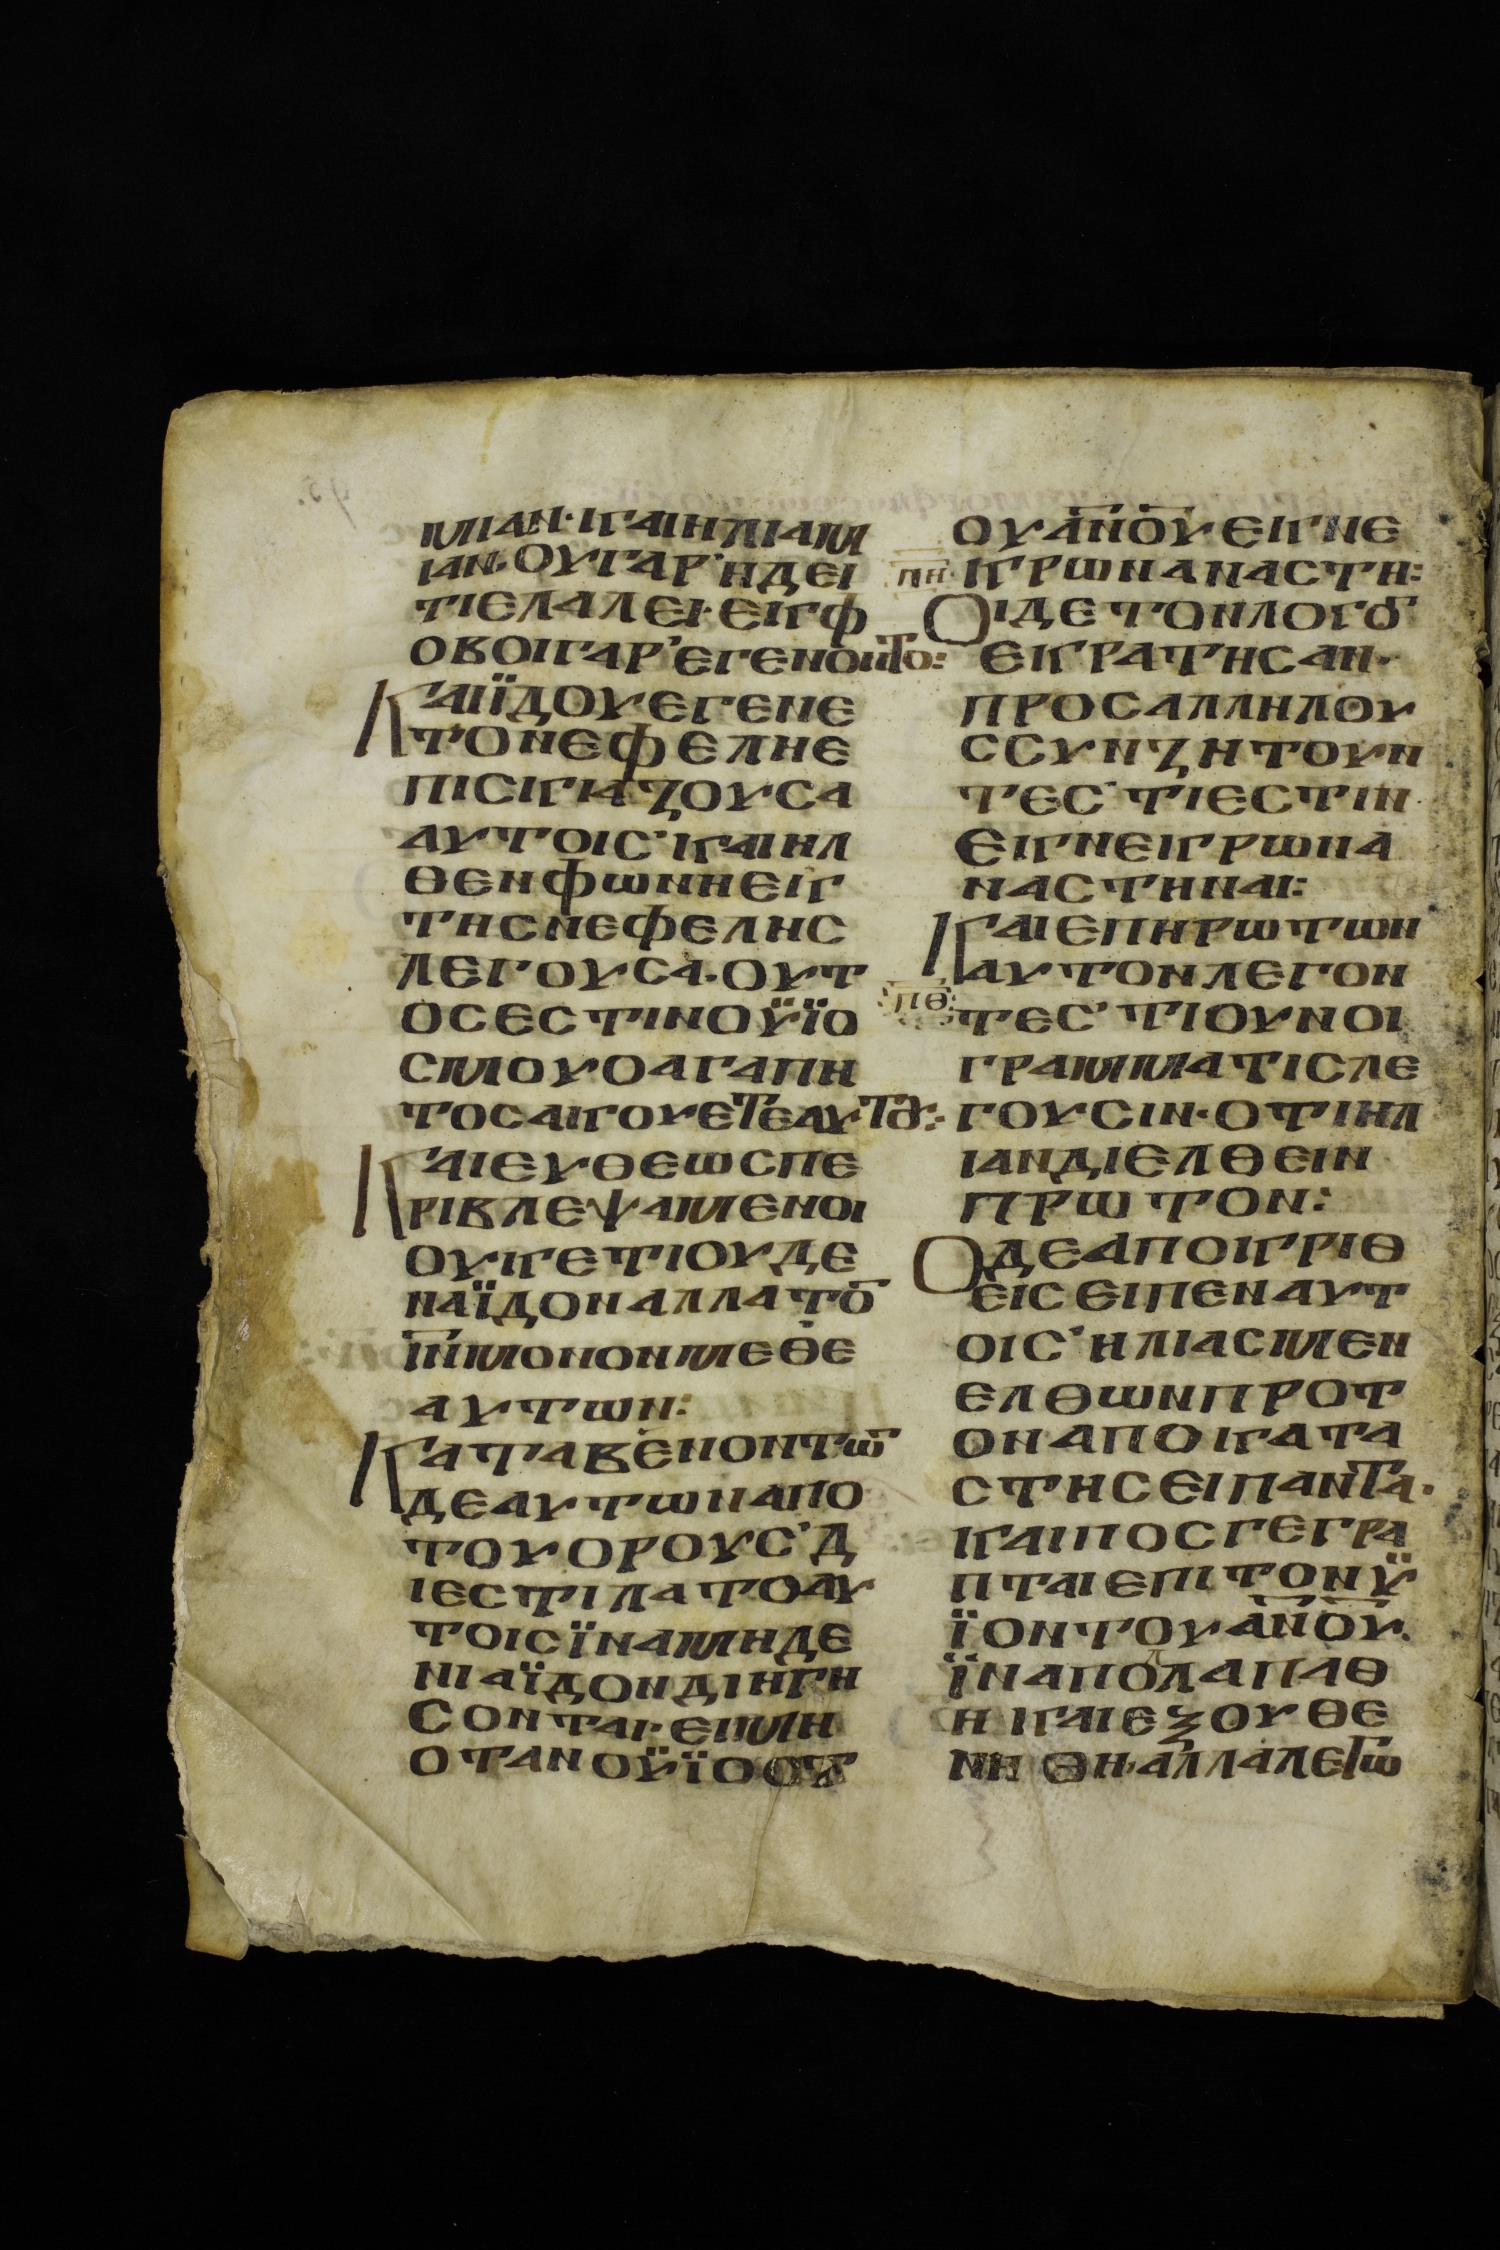 ΜΙΑΝ· ΚΑΙΗΛΙΑΜ
ΙΑΝ· ΟΥΓΑΡ ̓ΗΔΕΙ
ΤΙΕΛΑΛΕΙ· ΕΚΦ
ΟΒΟΙΓΑΡ ̓ΕΓΕΝΟΙΝΤΟ:
ΚΑΙΪΔΟΥΕΓΕΝΕ
ΤΟΝΕΦΕΛΗΕ
ΠΙΣΚΙΑΖΟΥΣΑ
ΑΥΤΟΙΣ ̓ΚΑΙΗΛ
ΘΕΝΦΩΝΗΕΚ
ΤΗΣΝΕΦΕΛΗΣ
ΛΕΓΟΥΣΑ· ΟΥΤ
ΟΣΕΣΤΙΝΟΫΪΟ
ΣΜΟΥΟΑΓΑΠΗ
ΤΟΣΑΚΟΥΕΤΕΑΥΤȢ:
ΚΑΙΕΥΘΕΩΣΠΕ
ΡΙΒΛΕΨΑΜΕΝΟΙ
ΟΥΚΕΤΙΟΥΔΕ
ΝΑΪΔΟΝΑΛΛΑΤΟ̅
Ι̅Ν̅ΜΟΝΟΝΜΕΘΕ
ΑΥΤΩΝ:
ΚΑΤΑΒΕΝΟΝΤΩ̅
ΔΕΑΥΤΩΝΑΠΟ
ΤΟΥΟΡΟΥΣ ̓Δ
ΙΕΣΤΙΛΑΤΟΑΥ
ΤΟΙΣΪΝΑΜΗΔΕ
ΝΙΑΪΔΟΝΔΙΗΓΗ
ΣΟΝΤΑΙ· ΕΙΜΗ
ΟΤΑΝΟΫΪΟΣΤ
ΟΥΑ̅Ν̅Ο̅Υ̅ΕΚΝΕ
Π̅Η̅
ΚΡΩΝΑΝΑΣΤΗ:
ΟΙΔΕΤΟΝΛΟΓΟ̅
ΕΚΡΑΤΗΣΑΝ·
ΠΡΟΣΑΛΛΗΛΟΥ
ΣΣΥΝΖΗΤΟΥΝ
ΤΕΣ ̓ΤΙΕΣΤΙΝ
ΕΚΝΕΚΡΩΝΑ
ΝΑΣΤΗΝΑΙ:
ΚΑΙΕΠΗΡΩΤΩΝ
ΑΥΤΟΝΛΕΓΟΝ
Π̅Θ̅
ΤΕΣ ̓ΤΙΟΥΝΟΙ
ΓΡΑΜΜΑΤΙΣΛΕ
ΓΟΥΣΙΝ· ΟΤΙΗΛ
ΙΑΝΔΙΕΛΘΕΙΝ
ΠΡΩΤΟΝ:
ΟΔΕΑΠΟΚΡΙΘ
ΕΙΣΕΙΠΕΝΑΥΤ
ΟΙΣ ̓ΗΛΙΑΣΜΕΝ
ΕΛΘΩΝΠΡΟΤ
ΟΝΑΠΟΚΑΤΑ
ΣΤΗΣΕΙΠΑΝΤΑ·
ΚΑΙΠΟΣΓΕΓΡΑ
ΠΤΑΙΕΠΙΤΟΝΫ
ΪΟΝΤΟΥΑ̅Ν̅Ο̅Υ̅·
ΪΝΑΠΟΛΑΠΑΘ
ΗΚΑΙΕΞΟΥΘΕ
ΝΗΘΗ· ΑΛΛΑΛΕΓΩ